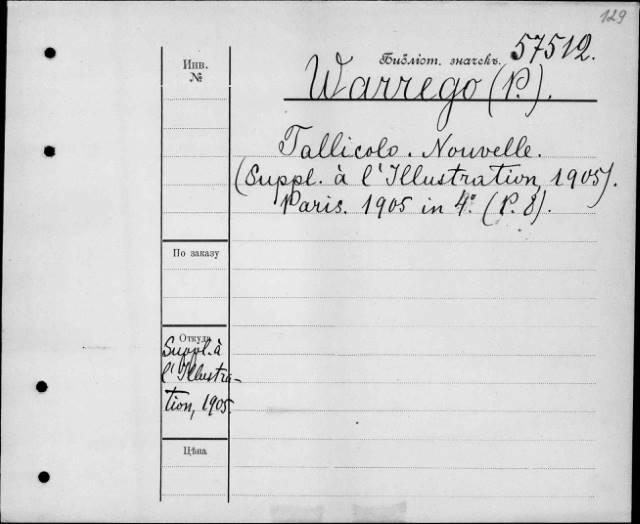 129
Библіот. значекъ. 57512.
Инв.
№
Warrego (P.).
Tallicolo. Nouvelle.
(Suppl. à l'Illustration, 1905).
Paris. 1905 in 4º. (P. 8).
По заказу
Откуда
Suppl. à
l'Illustra-
tion, 1905.
Цѣна